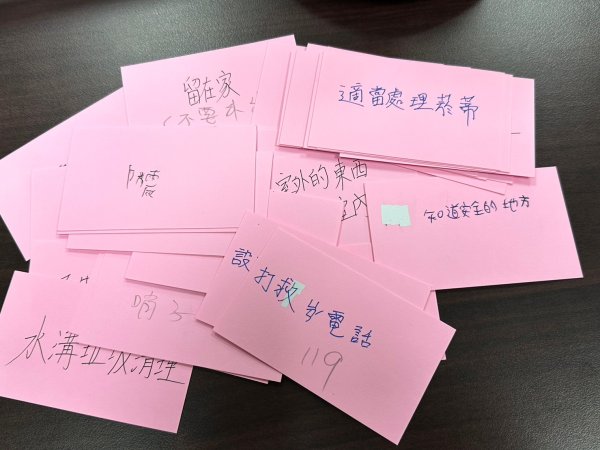 留在家
適當處理菸蒂
室外的東西
室內
知道安全的地方
設
打救
電話
119
哨子
水溝垃圾清理